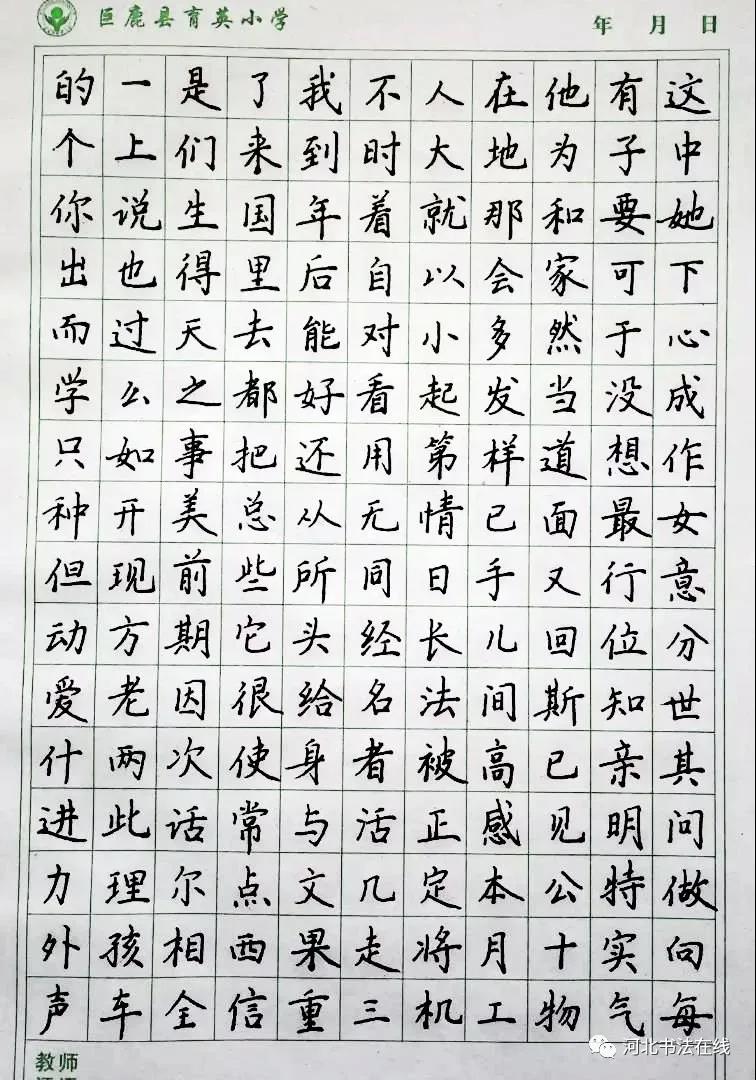 巨鹿县育英小学
年 月 日
的一是了我不人在他有这
个上们来到时大地为子中
你说生国年着就那和要她
出也得里后自以会家可下
而过天去能对小多然于心
学么之都好看起发当没成
只如事把还用第样道想作
种开美总从无情已面最女
但现前些所同日手又行意
动方期它头经长儿回位分
爱老因很给名法间斯知世
什两次使身者被高已亲其
进此话常与活正感见明问
力理尔点文几定本公特做
外孩相西果走将月十实向
声车全信重三机工物气每
教师
河北书法在线